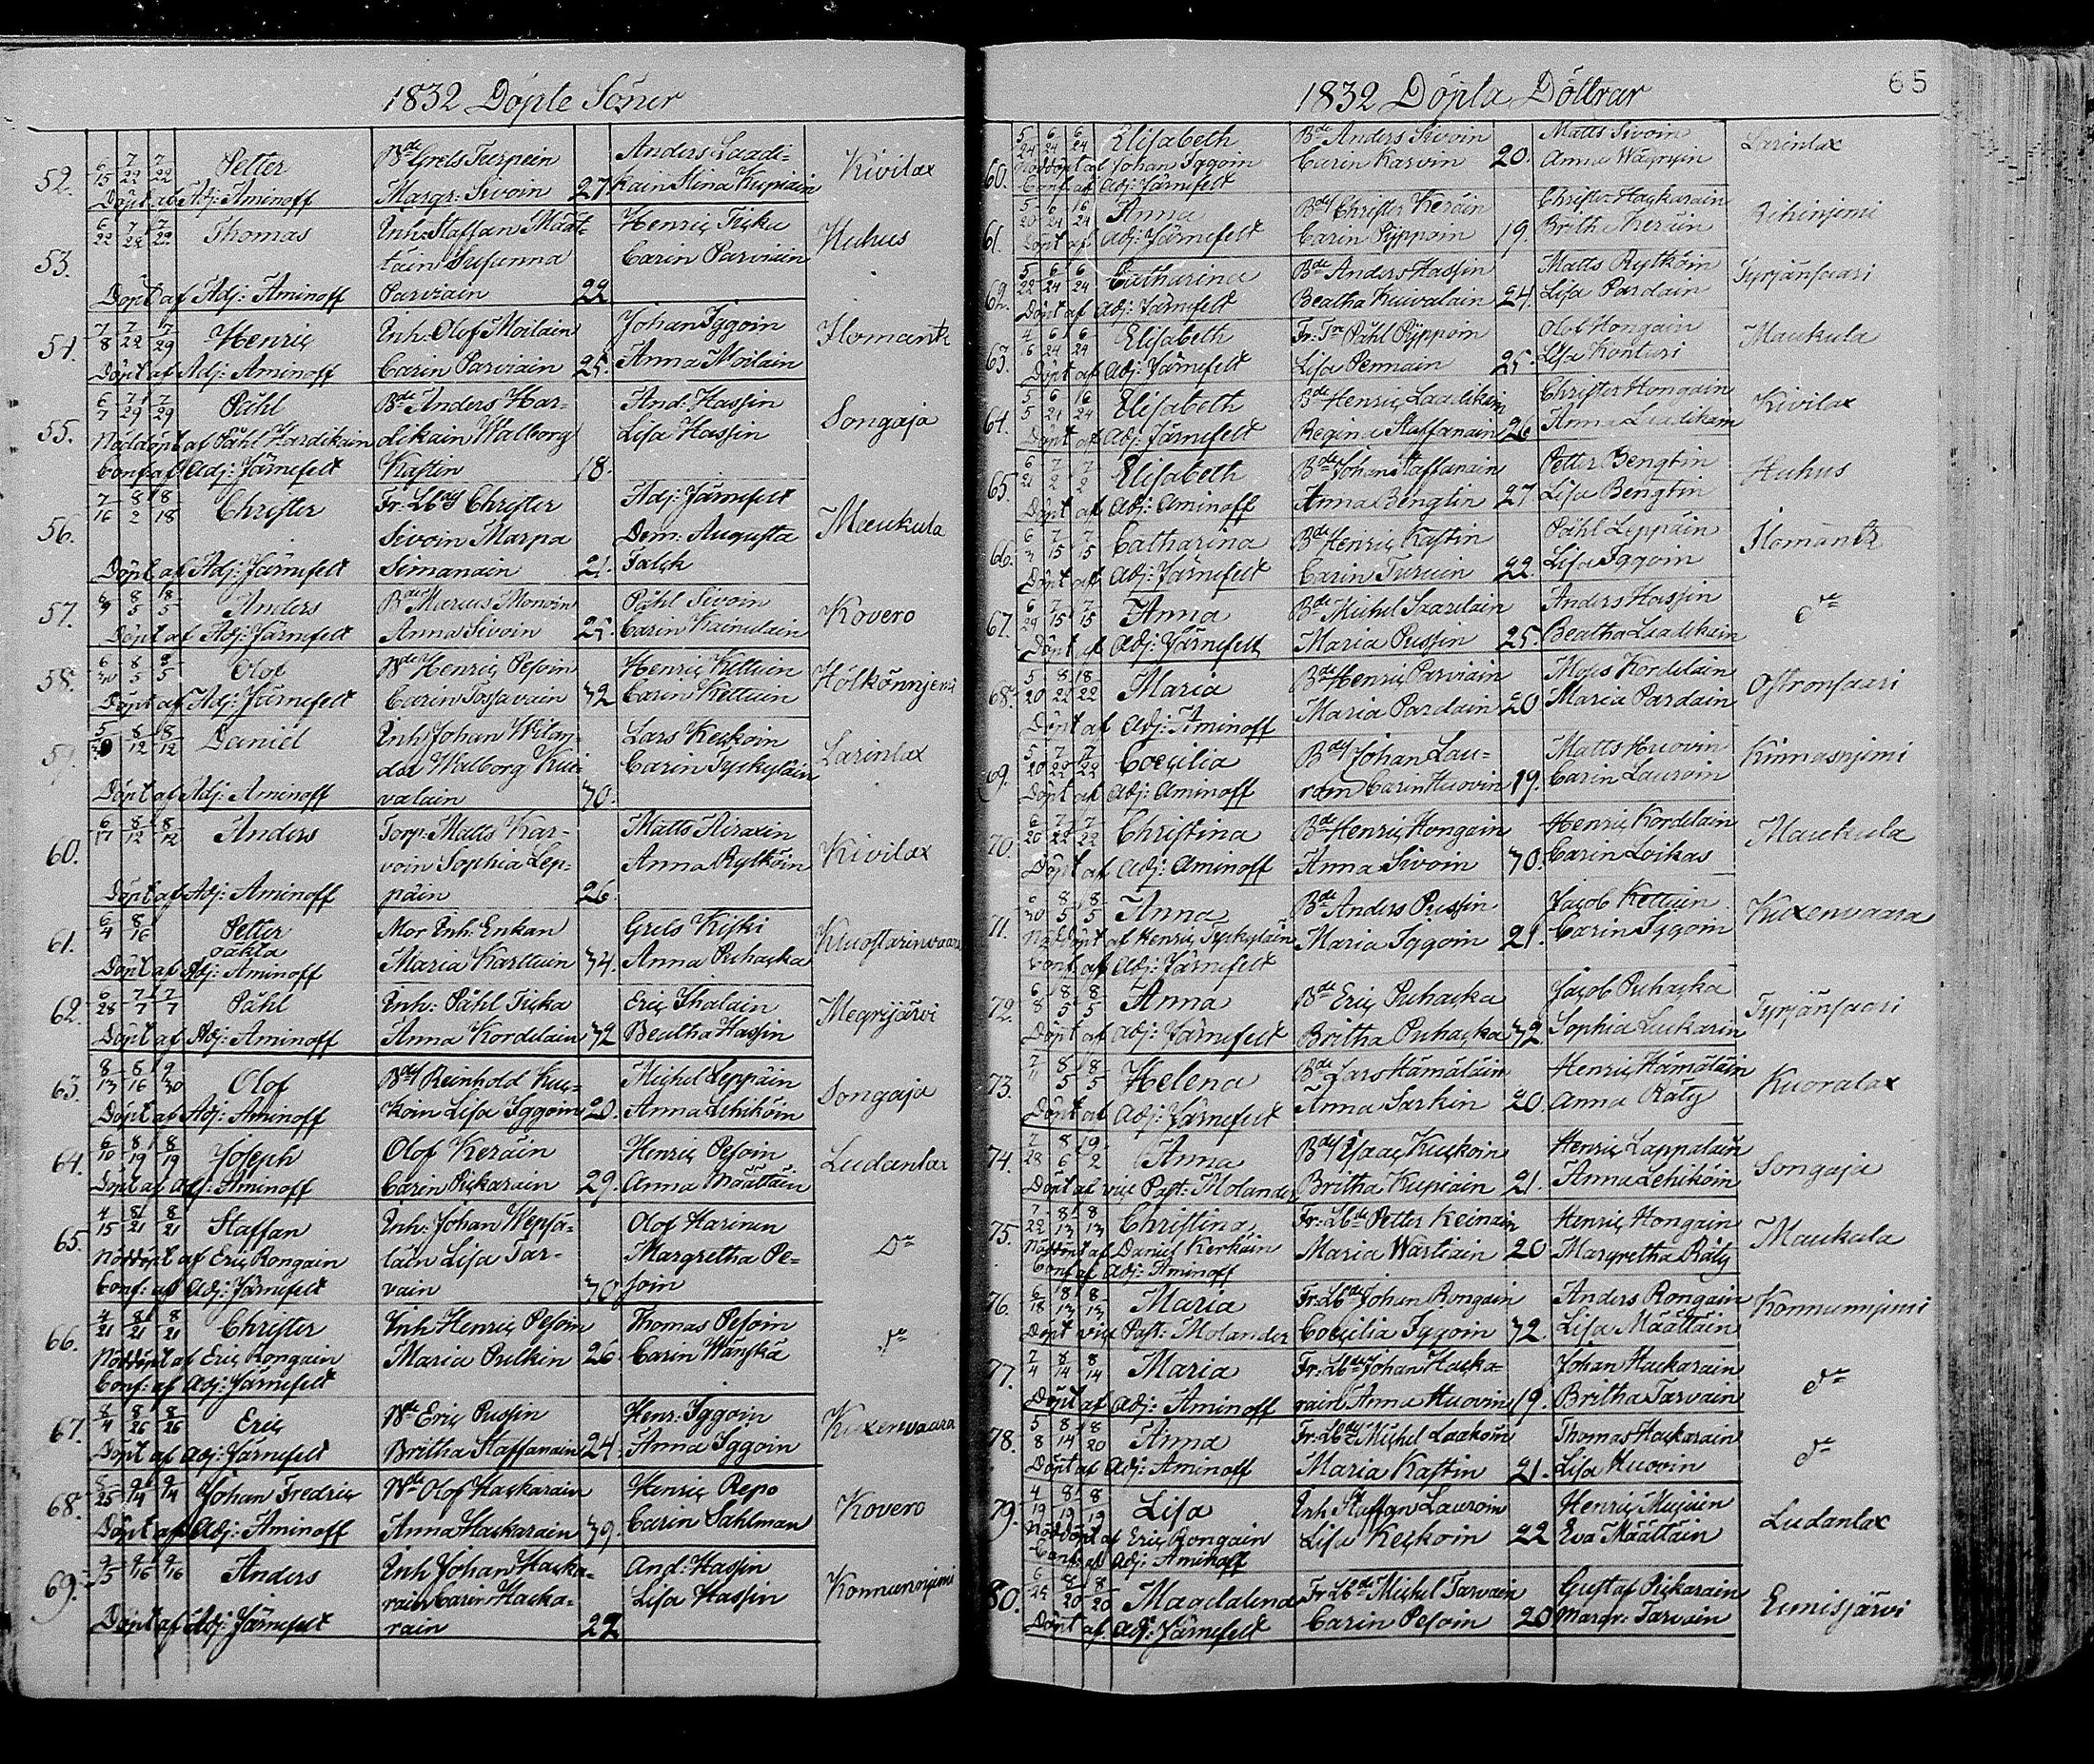 1832 Döpte Söner
52. 6/15 7/22 7/22 Petter Bde Grels Turpein Anders Laadi- Kivilax
Döpt af Adj: Aminoff Margr: Sivoin 27 kain Stina Kupiain
53. 6/22 7/22 7/22 Thomas Inh: Staffan Määt- Henric Ticka Huhus
täin Susanna Carin Parviain
Döpt af Adj: Aminoff Parviain 22
54. 7/8 7/29 7/29 Henric Inh: Olof Moilain Johan Iggoin Ilomants
Döpt af Adj: Aminoff Carin Parviain 25. Anna Moilain
55. 6/7 7/29 7/29 Påhl Bde Anders Har- And: Hassin Songaja
Nöddöpt af Påhl Hardikain dikain Walborg Lisa Hassin
Conf: af Adj: Järnefelt Kastin 18.
56. 7/16 8/2 8/18 Christer Fr: Lbds Christer Adj: Järnefelt Maukula
Sivoin Marpa Dem: Augusta
Döpt af Adj: Järnefelt Simanain 21. Falck
57. 8/5 8/5 Anders Bde Marcus Monoin Påhl Sivoin Kovero
Döpt af Adj: Järnefelt Anna Sivoin 25. Carin Kainulain
58. 6/30 8/5 8/5 Olof Bde Henric Pesoin Henric Kettuin Hölkönnjemi
Döpt af Adj: Järnefelt Carin Tossavain 32 Carin Kettuin
59. 8/12 8/12 Daniel Inh: Johan Wilan- Lars Keckoin Larinlax
der Walborg Kui- Carin Tyckyläin
Döpt af Adj: Aminoff valain 30.
60. 6/17 8/12 8/12 Anders Torp: Matts Kar- Matts Airaxin Kivilax
voin Sophia Lep- Anna Rytköin
Döpt af Adj: Aminoff päin 26.
61. 6/4 8/16 Petter Mor Inh: Enkan Grels Kiski Kuostarinvaara
oäkta
Döpt af Adj: Aminoff Maria Karttuin 34. Anna Puhacka
62. 6/28 7/7 7/7 Påhl Inh: Påhl Ticka Eric Ihalain Megrijärvi
Döpt af Adj: Aminoff Anna Kordelain 32 Beatha Hassin
63. Olof Bds Reinhold Kuc- Michel Leppäin Songaja
Döpt af Adj: Aminoff koin Lisa Iggoin 20. Anna Lehikoin
64. 6/10 8/19 8/19 Joseph Olof Keräin Henric Pesoin Ludanlax
Döpt af Adj: Aminoff Carin Pickarain 29. Anna Määttäin
65. 4/15 8/21 8/21 Staffan Inh: Johan Wepsä- Olof Harinen Do
Nöddöpt af Eric Rongain läin Lisa Tar- Margretha Pe-
Conf: af Adj: Järnefelt vain 30. soin
66. 4/21 8/21 8/21 Christer Inh Henric Pesoin Thomas Pesoin Do
Nöddöpt af Eric Rongain Maria Pulkin 26 Carin Wänskä
Conf: af Adj: Järnefelt
67. 8/4 8/26 8/26 Eric Bde Eric Pussin Henr: Iggoin Kuxenvaara
Döpt af Adj: Järnefelt Britha Staffanain 24. Anna Iggoin
68. 8/25 9/14 9/14 Johan Fredric Bde Olof Hackarain Henric Repo Kovero
Döpt af Adj: Aminoff Anna Hackarain 39. Carin Sahlman
69. 9/16 9/16 Anders Inh Johan Hacka- And: Hassin Konnunnjemi
rain Carin Hacka- Lisa Hassin
Döpt af Adj: Järnefelt rain 22
1832 Döpta Döttrar 65
60. 5/24 6/24 6/24 Elisabeth Bde Anders Sivoin Matts Sivoin Larinlax
Nöddöpt af Johan Iggoin Carin Karvin 20. Anna Wägryin
Conf: af Adj: Järnefelt
61. 5/20 6/24 Anna Bds Christer Keräin Christer Hackarain Rihinjemi
Döpt af Adj: Järnefelt Carin Pyppoin 19. Britha Keräin
62. 5/22 6/24 6/24 Catharina Bde Anders Hassin Matts Rytköin Tyrjänsaari
Döpt af Adj: Järnefelt Beatha Kuivalain 24. Lisa Pardain
63. 4/16 6/24 6/24 Elisabeth Fr: Tn Påhl Pyppoin Olof Hongain Maukula
Döpt af Adj: Järnefelt Lisa Pennain 25. Lisa Konturi
64. 5/5 6/24 6/24 Elisabeth Bde Henric Laadikain Christer Hongain Kivilax
Döpt af Adj: Järnefelt Regina Staffanain 26 Anna Laadikain
65. 6/21 7/2 7/2 Elisabeth Bde Johan Staffanain Petter Bengtin Huhus
Döpt af Adj: Aminoff Anna Bengtin 27 Lisa Bengtin
66. 6/3 7/15 7/15 Catharina Bde Henric Kastin Påhl Leppäin Ilomants
Döpt af Adj: Järnefelt Carin Turuin 22. Lisa Iggoin
67. 6/29 7/15 7/15 Anna Bde Michel Saarelain Anders Hassin do
Döpt af Adj: Järnefelt Maria Pussin 25. Beatha Laadikain
68. 5/20 Maria Bde Henric Parviain Moses Kordelain Ostronsaari
Döpt af Adj: Aminoff Maria Pardain 20 Maria Pardain
69. 5/20 7/22 7/22 Coecilia Bds Johan Lau- Matts Huovin Kinnasnjemi
Döpt af Adj: Aminoff roin Carin Huovin 19. Carin Lauroin
70. 6/20 7/22 7/22 Christina Bde Henric Hongain Henric Kordelain Maukula
Döpt af Adj: Aminoff Anna Sivoin 30. Carin Loikas
71. 6/30 8/5 8/5 Anna Bde Anders Pussin Jacob Kettuin Kuxenvaara
Nöddöpt af Henric Tyckyläin Maria Iggoin 21. Carin Iggoin
Conf: af Adj: Järnefelt
72. 6/8 8/5 8/5 Anna Bde Eric Puhacka Jacob Puhacka Tyrjänsaari
Döpt af Adj: Järnefelt Britha Puhacka 32. Sophia Luckarin
73. 8/5 8/5 Helena Bde Lars Hämäläin Henric Hämäläin Kuoralax
Döpt af Adj: Järnefelt Anna Sarkin 20. Anna Räty
74. 7/28 Anna Bds Isaac Kuckoin Henric Lappalain Songaja
Döpt af vice Past: Molander Britha Kupiain 21. Anna Lehikoin
75. 7/22 8/13 8/13 Christina Fr: Lbde Petter Keinain Henric Hongain Maukula
Nöddöpt af Daniel Kerkäin Maria Wartiain 20 Margretha Räty
Conf af Adj: Aminoff
76. 6/18 8/13 8/13 Maria Fr: Lbde Johan Rongain Anders Rongain Konnunnjemi
Döpt vice Past: Molander Coecilia Iggoin 32. Lisa Määttäin
77. 7/4 8/14 8/14 Maria Fr: Lbde Johan Hacka- Johan Hackarain do
Döpt af Adj: Aminoff rain Anna Huovin 19. Britha Tarvain
78. 5/8 8/14 8/20 Anna Fr: Lbds Michel Laakoin Thomas Hackarain do
Döpt af Adj: Aminoff Maria Kastin 21. Lisa Huovin
79. 4/19 8/19 8/19 Lisa Inh Staffan Lauroin Henric Mujuin Ludanlax
Nöddöpt af Eric Rongain Lisa Keckoin 22 Eva Määttäin
Conf: af Adj: Aminoff
80. 8/20 8/20 Magdalena Fr Lbde Michel Tarvain Gustaf Pickarain Eunisjärvi
Döpt af Adj: Järnefelt Carin Pesoin 20 Margr: Tarvain